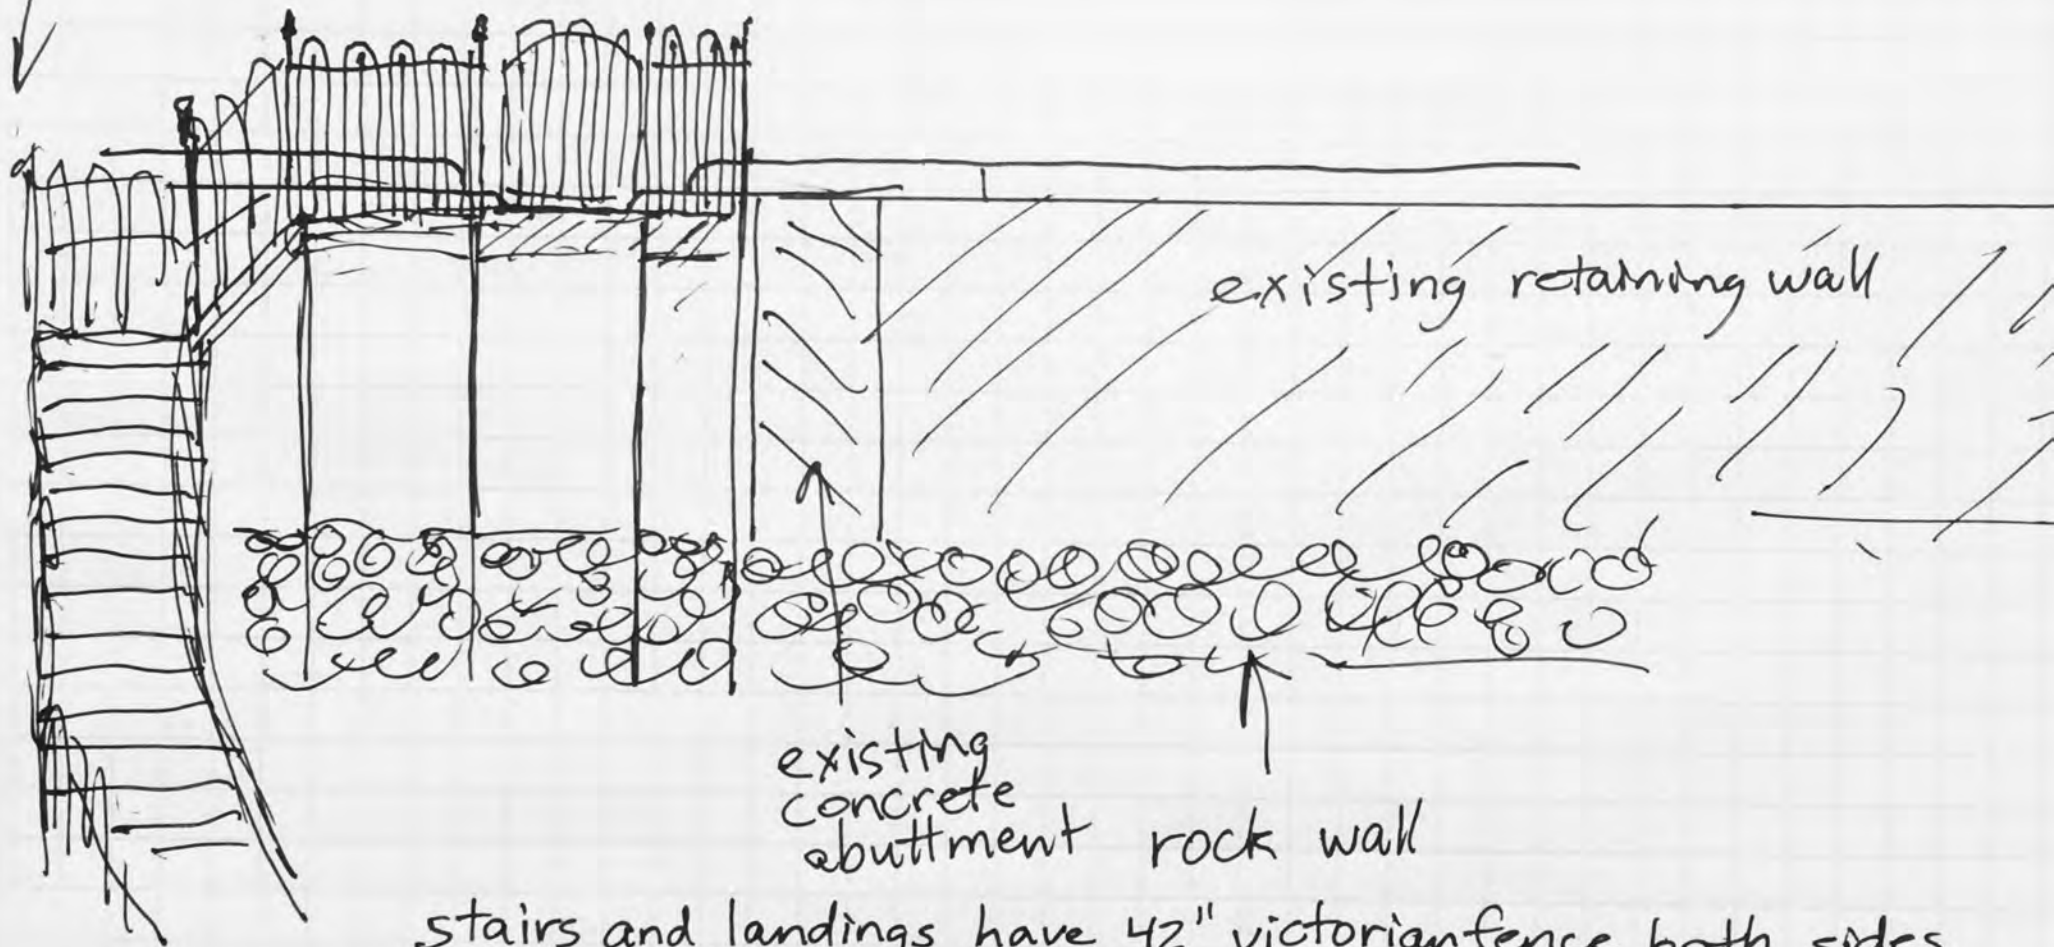 existing retaining wall
existing
concrete
abuttment
rock wall
stairs and landings have 42" victorian fence both sides